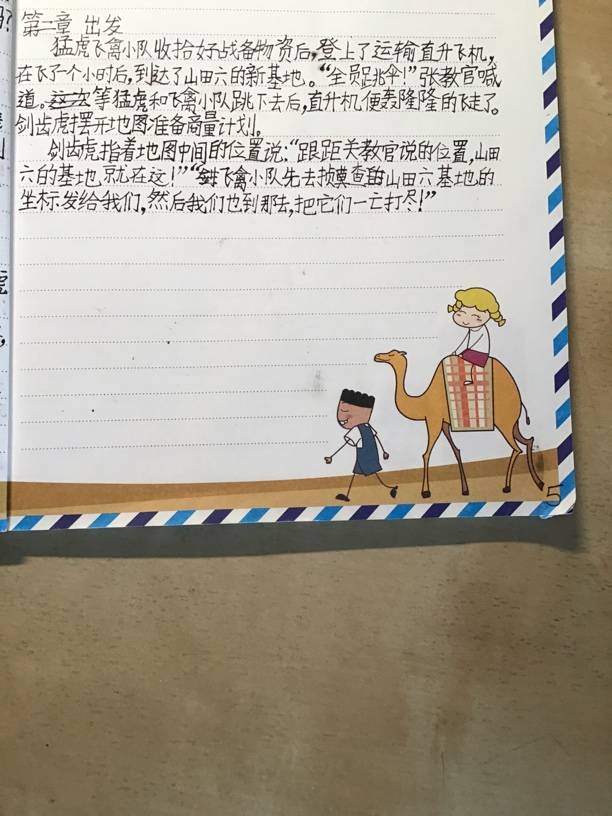 第二章 出发
猛虎飞禽小队收拾好战备物资后,登上了运输直升飞机,
在飞了一个小时后,到达了山田六的新基地。“全员跳伞!”张教官喊
道。等猛虎和飞禽小队跳下去后,直升机便轰隆隆的飞走了。
剑齿虎摆开地图准备商量计划。
剑齿虎指着地图中间的位置说:“跟距关教官说的位置,山田
六的基地就在这!”“飞禽小队先去把查的山田六基地的
坐标发给我们,然后我们也到那去,把它们一亡打尽!”
5